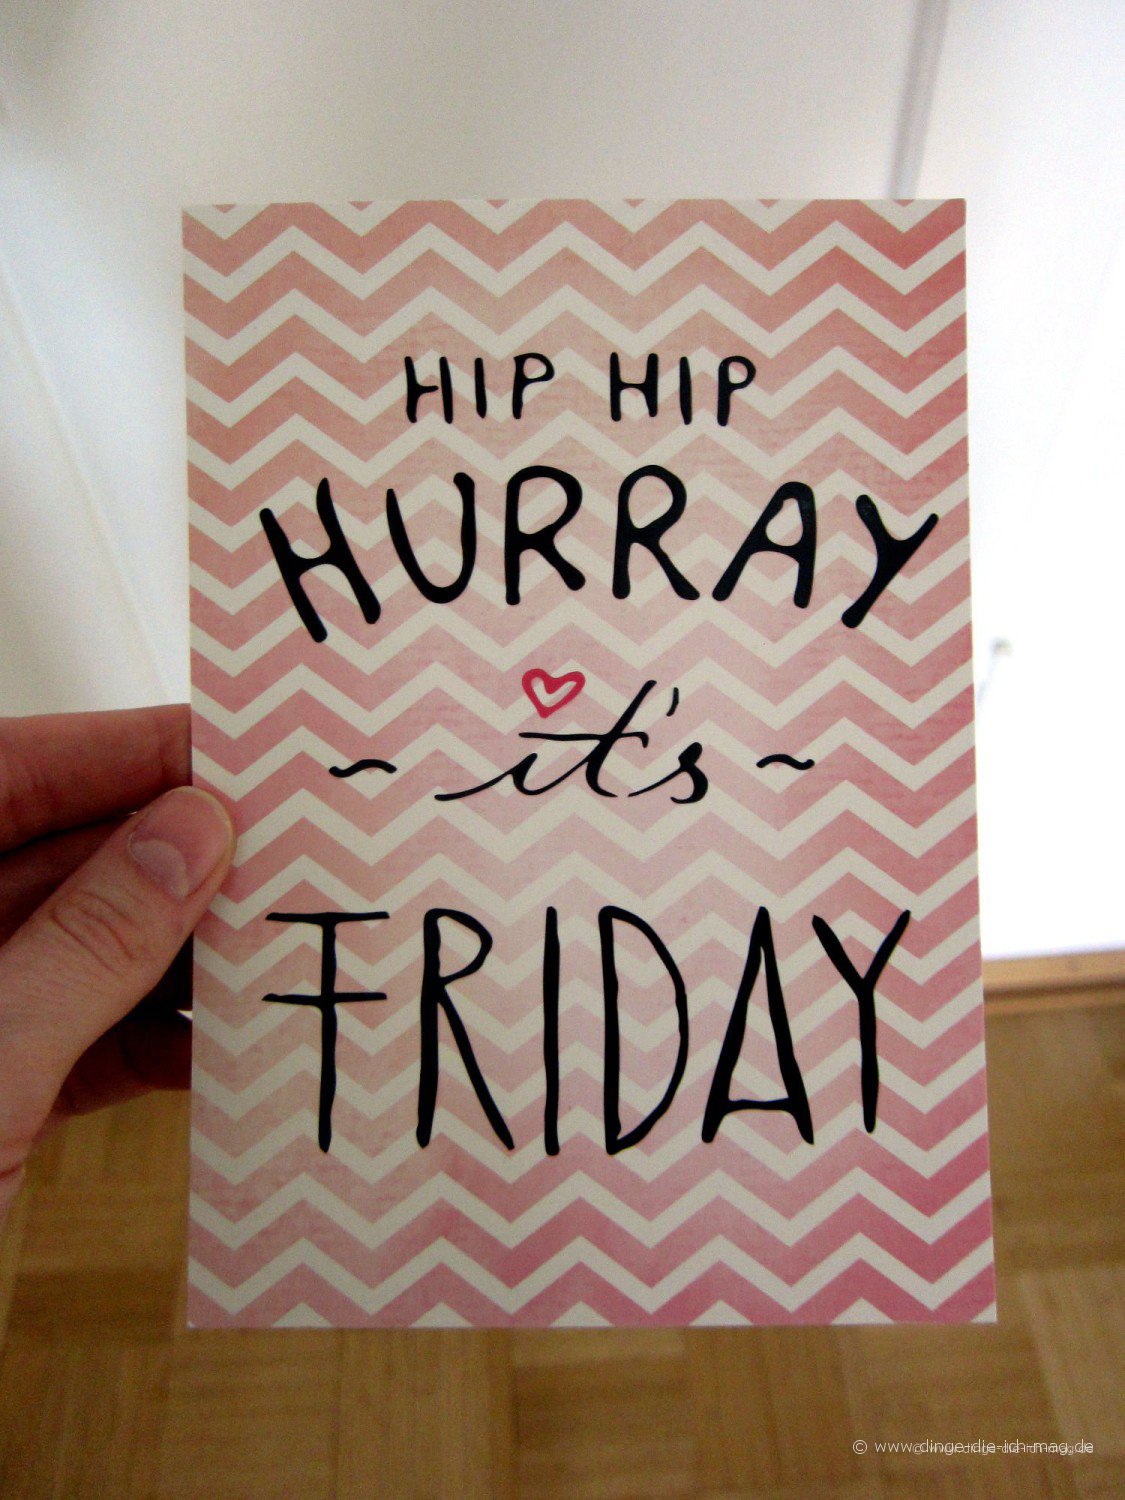 HIP HIP
HURRAY
~ it's ~
FRIDAY
© www.dinge-die-ich-mag.de